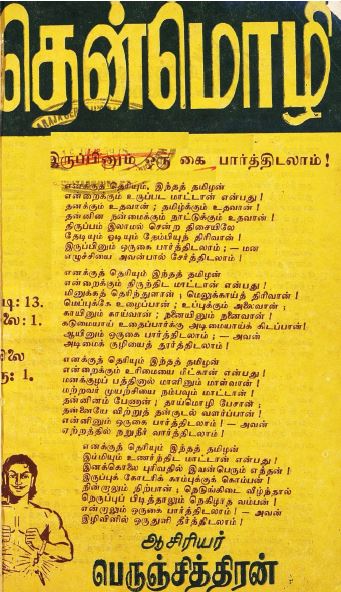 தென்மொழி
இருப்பினும் ஒரு கை பார்த்திடலாம் !
எனக்குத் தெரியும், இந்தத் தமிழன்
என்றைக்கும் உருப்பட மாட்டான் என்பது !
தனக்கும் உதவான் ; தமிழ்க்கும் உதவான் !
தன்னின நன்மைக்கும் நாட்டுக்கும் உதவான் !
திருப்பம் இலாமல் சென்ற திசையிலே
தேடியும் ஓடியும் தேம்பியுந் திரிவான் !
இருப்பினும் ஒருகை பார்த்திடலாம் ; — மன
எழுச்சியை அவன்பால் சேர்த்திடலாம் !
எனக்குத் தெரியும் இந்தத் தமிழன்
என்றைக்கும் திருந்திட மாட்டான் என்பது !
மினுக்கத் தெரிந்துளான் ; மெலுக்காய்த் திரிவான் !
மெய்புக்கே உழைப்பான் ; உப்புக்கும் அலைவான் ;
காயினும் காய்வான் ; நனையினும் நனைவான் !
கடுமையாய் உதைப்பார்க்கு அடிமையாய்க் கிடப்பான்!
ஆயினும் ஒருகை பார்த்திடலாம் ; — அவன்
அடிமைக் குழியைத் தூர்த்திடலாம் !
எனக்குத் தெரியும் இந்தத் தமிழன்
என்றைக்கும் உரிமையை மீட்கான் என்பது !
மனக்குழப் பத்தினுல் மானினும் மாள்வான் !
மற்றவர் முயற்சியை நம்பவும் மாட்டான் !
தன்னினம் பேணான் ; தாய்மொழி பேசான் ;
தன்னையே விற்றுத் தன்குடல் வளர்ப்பான் !
என்னினும் ஒருகை பார்த்திடலாம் ! — அவன்
ஏற்றத்தில் நறுநீர் வார்த்திடலாம் !
எனக்குத் தெரியும் இந்தத் தமிழன்
இம்மியும் உணர்ந்திட மாட்டான் என்பது !
இனக்கொலை புரிவதில் இவன்பெரும் எத்தன் !
இருப்புக் கோடரிக் காம்புக்குக் கொம்பன் !
நின்றாலும் நிற்பான் ; நெடுங்கிடை வீழ்ந்தால்
நெருப்புப் பிடித்தாலும் நெகிழாத வம்பன் !
என்றாலும் ஒருகை பார்த்திடலாம் ! — அவன்
இழிவினில் ஒருதுளி தீர்த்திடலாம் !
டி: 13.
லை: 1.
லை
ரு: 1.
ஆசிரியர்
பெருஞ்சித்திரன்